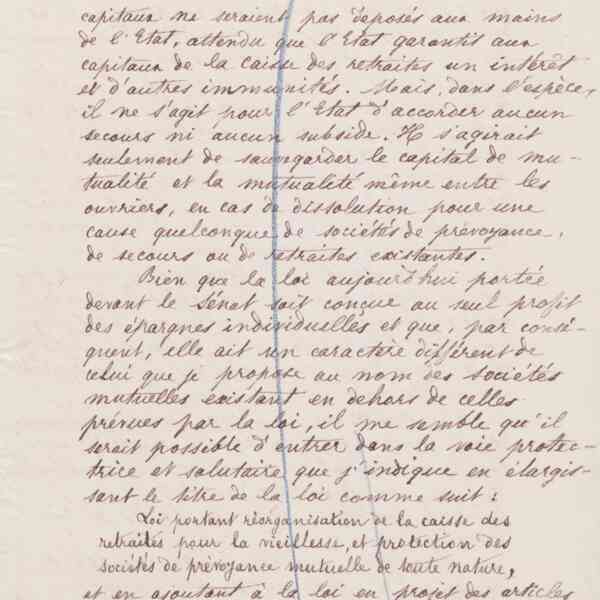 capitaux ne seraient pas déposés aux mains
de l'Etat, attendu que l'Etat garantit aux
capitaux de la caisse des retraites un intérêt
et d'autres immunités. Mais, dans l'espèce,
il ne s'agit pour l'Etat d'accorder aucun
secours ni aucun subside. Il s'agirait
seulement de sauvegarder le capital de mu-
tualité et la mutualité même entre les
ouvriers, en cas de dissolution pour une
cause quelconque de sociétés de prévoyance,
de secours ou de retraites existantes.
Bien que la loi aujourd'hui portée
devant le Sénat soit conçue au seul profit
des épargnes individuelles et que, par consé-
quent, elle ait un caractère différent de
celui que je propose au nom des sociétés
mutuelles existant en dehors de celles
prévues par la loi, il me semble qu'il
serait possible d'entrer dans la voie protec-
trice et salutaire que j'indique en élargis-
sant le titre de la loi comme suit :
Loi portant réorganisation de la caisse des
retraites pour la vieillesse, et protection des
sociétés de prévoyance mutuelle de toute nature,
et en ajoutant à la loi en projet des articles